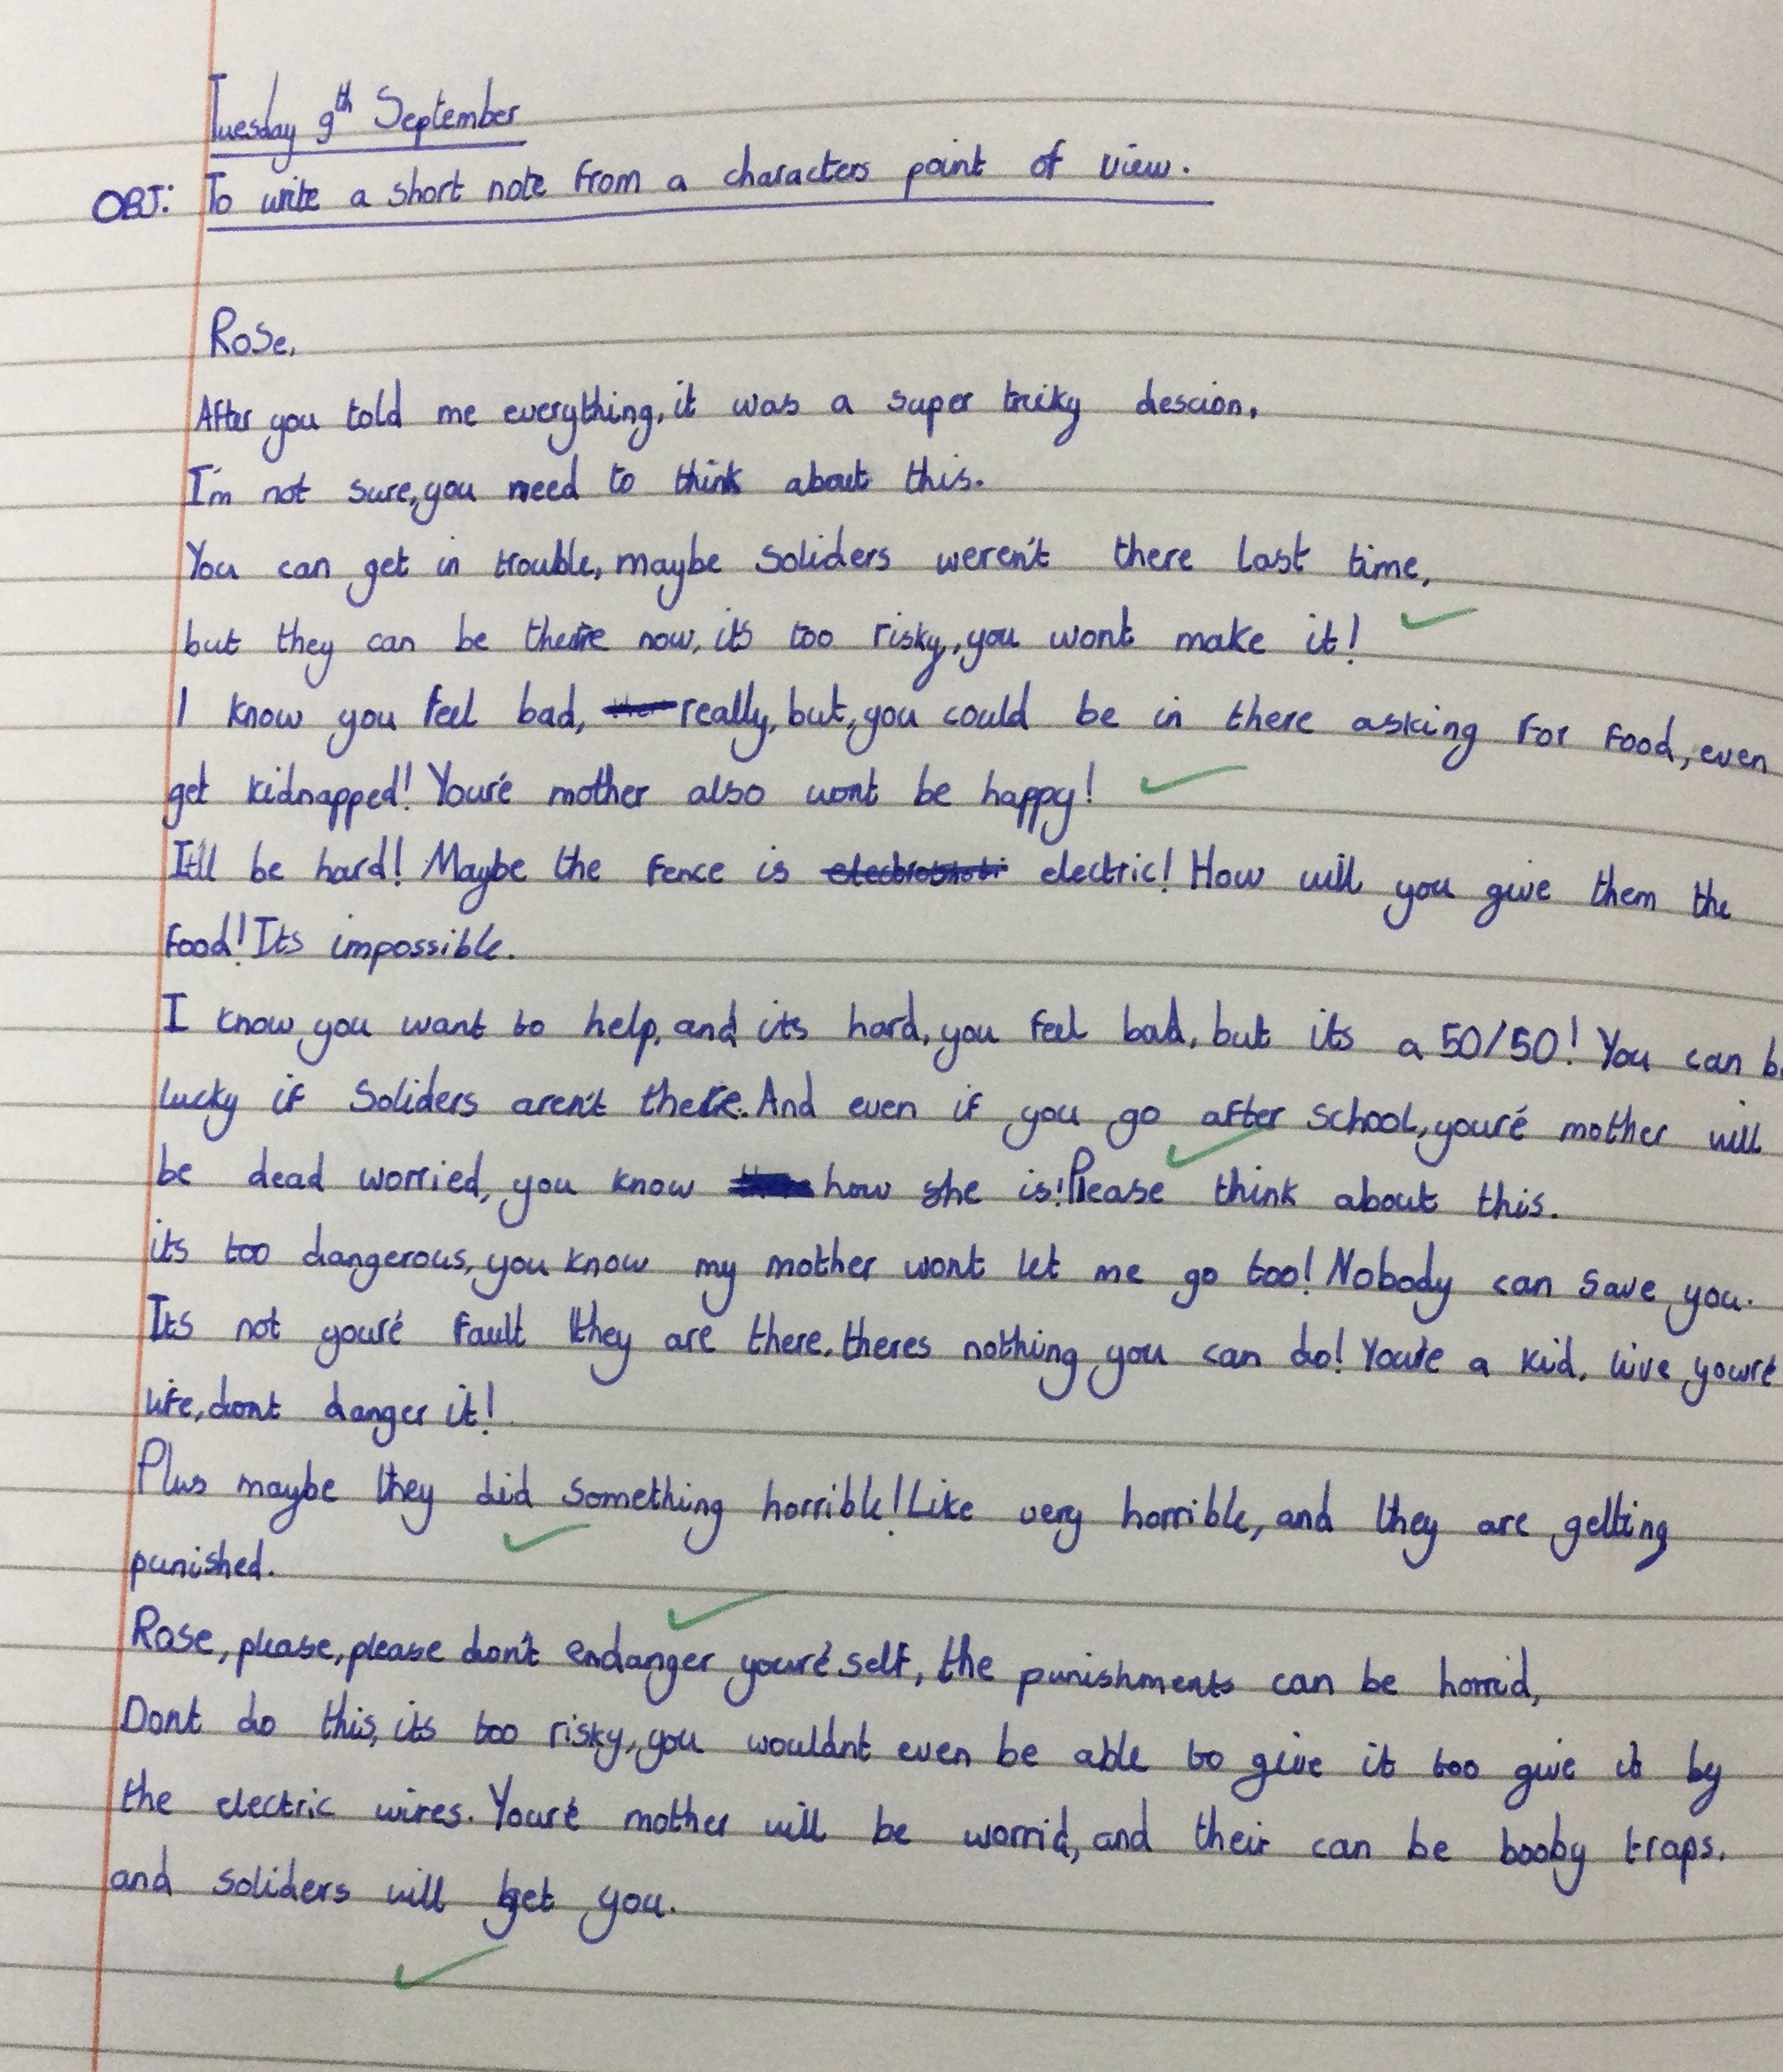 Tuesday 9th September
OBJ: To write a short note from a characters point of view.
Rose,
After you told me everything, it was a super triky descion,
I'm not sure, you need to think about this.
You can get in trouble, maybe soliders weren't there last time,
but they can be there now, it's too risky, you wont make it!
I know you feel bad, really, but, you could be in there asking for food, even
get kidnapped! Youre' mother also wont be happy!
It'll be hard! Maybe the fence is electric! How will you give them the
food! Its impossible.
I know you want to help, and its hard, you feel bad, but its a 50/50! You can be
lucky if soliders aren't there. And even if you go after school, youre' mother will
be dead worried, you know how she is! Please think about this.
its too dangerous, you know my mother wont let me go too! Nobody can save you.
Its not youre' fault they are there, theres nothing you can do! You're a kid, live youre'
life, dont danger it!
Plus maybe they did something horrible! Like very horrible, and they are getting
punished.
Rose, please, please don't endanger youre' self, the punishments can be horrid,
Dont do this, its too risky, you wouldnt even be able to give it too give it by
the electric wires. Youre' mother will be worrid, and their can be booby traps,
and soliders will get you.